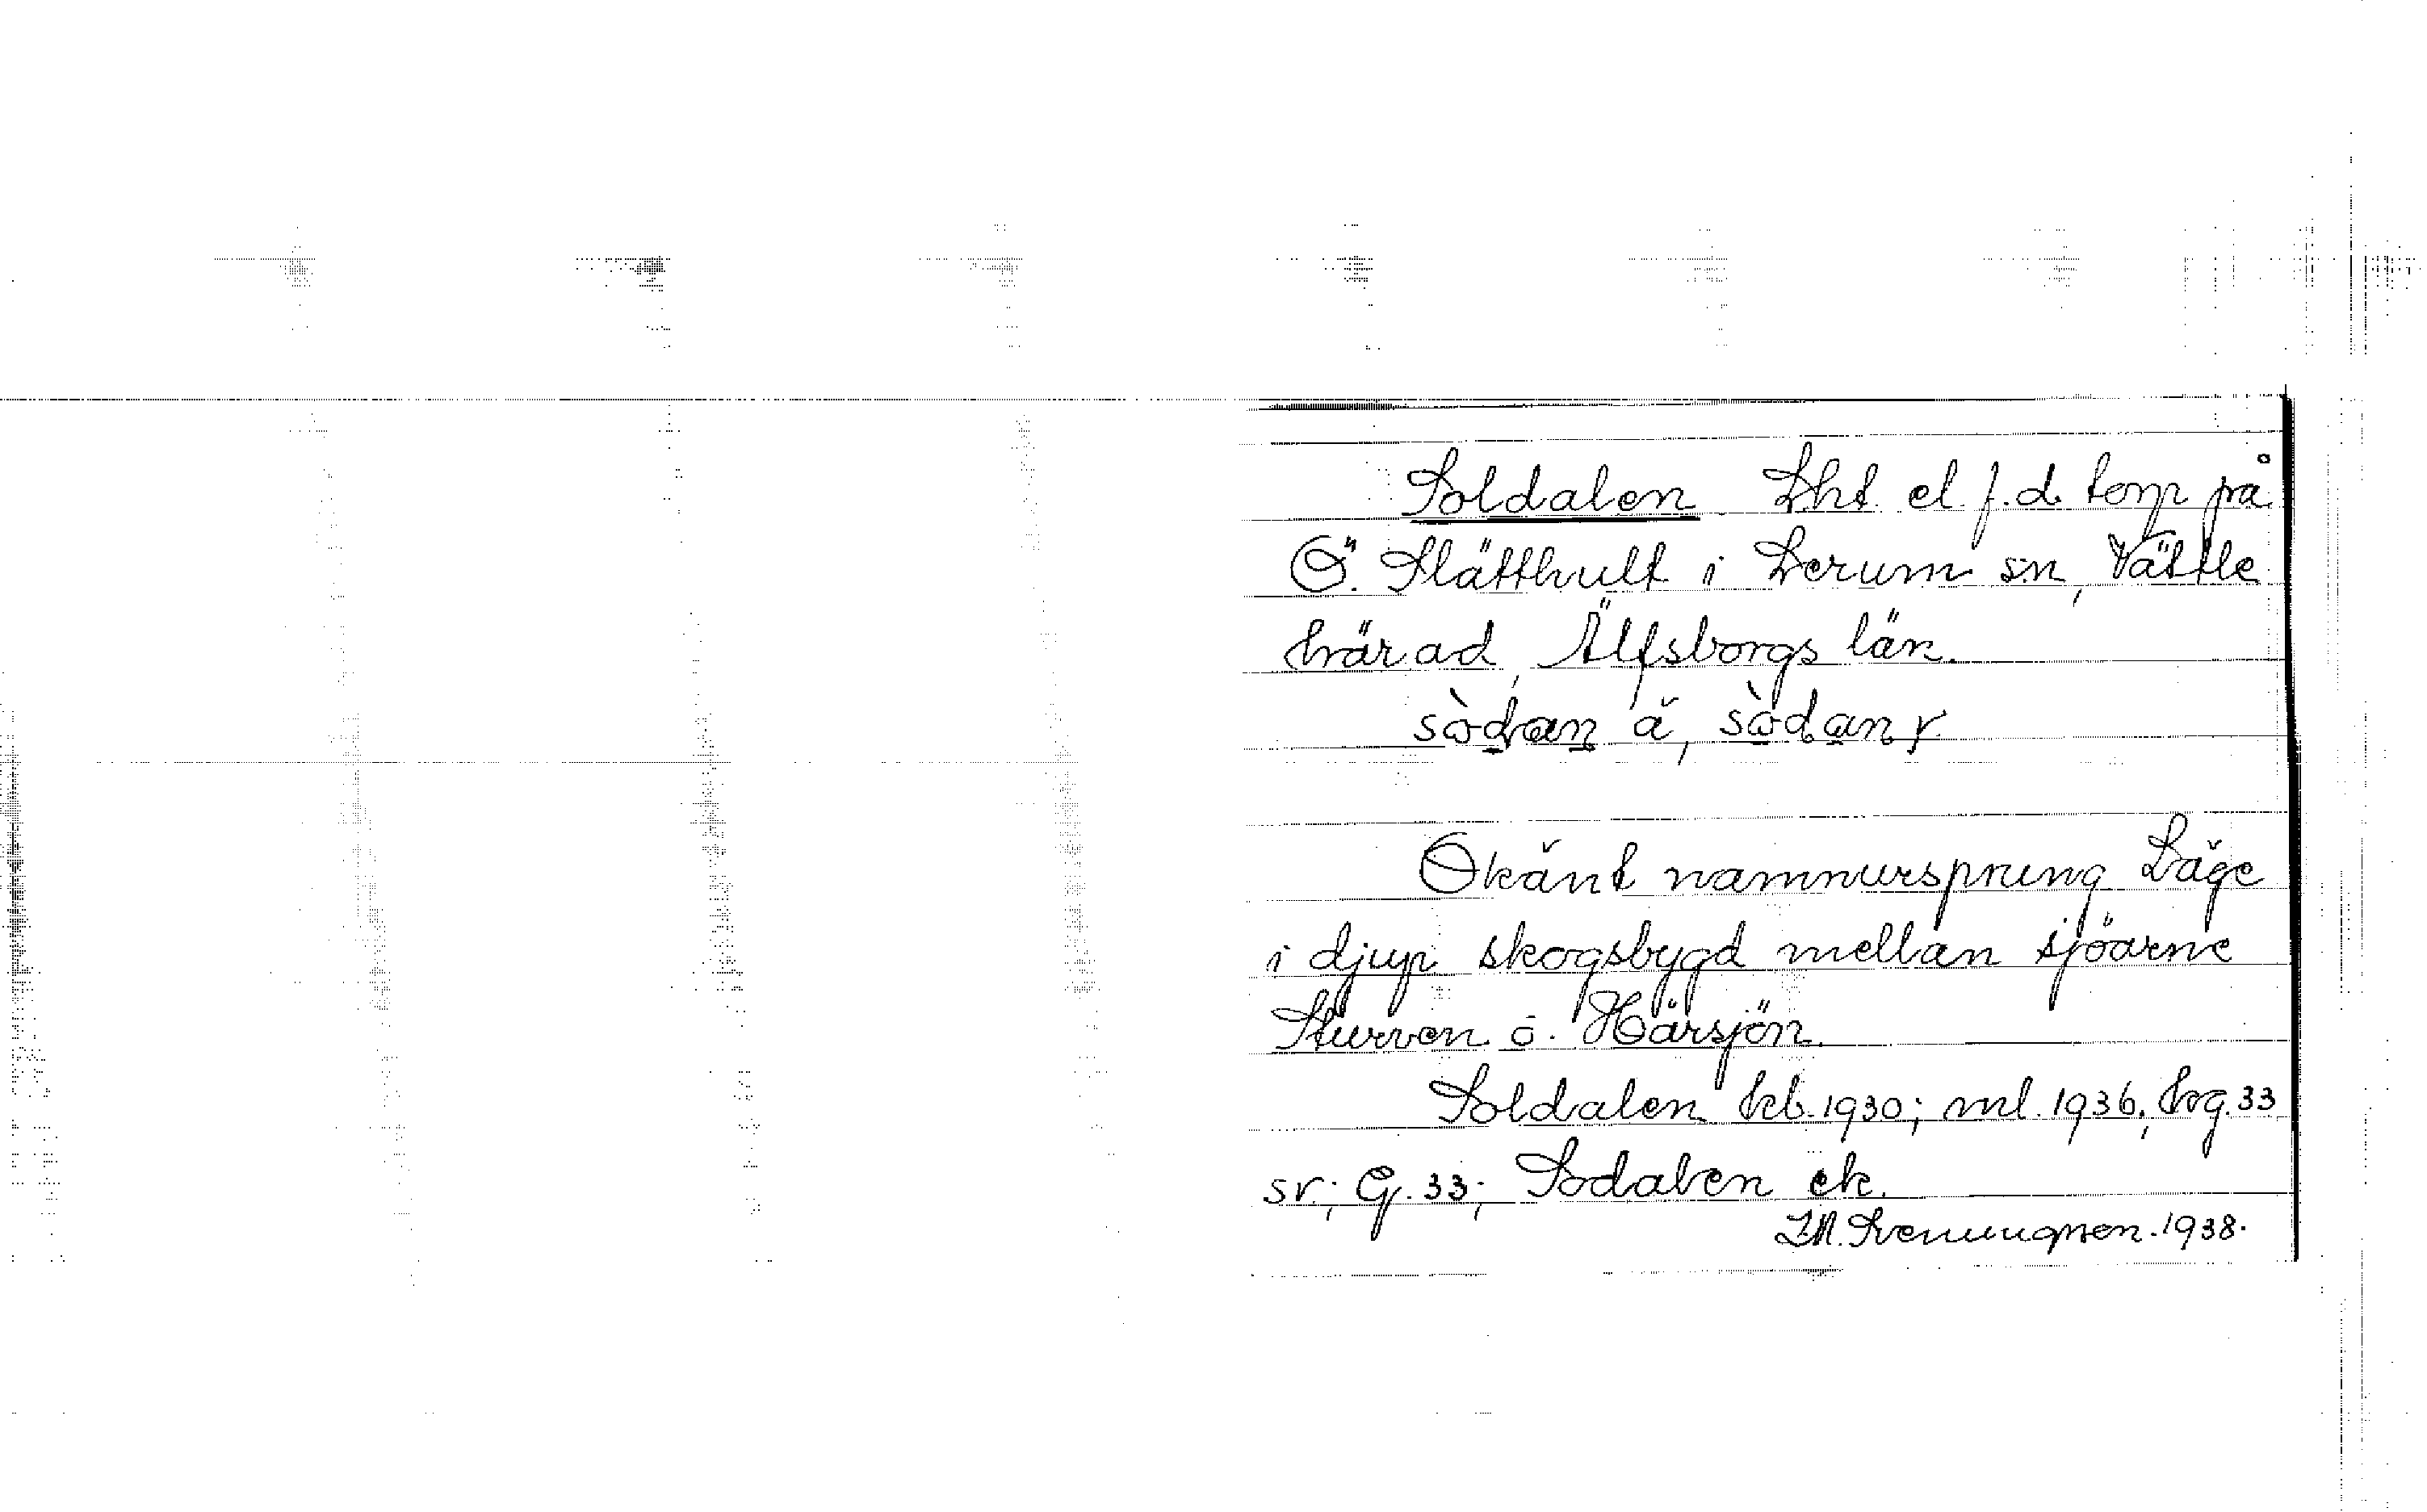 Soldalen. Lht. el. f.d. torp på
Ö. Slätthult i Lerum sn, Vättle
härad, Älfsborgs län.
sòdan ä, sòdan r
Okänt namnursprung Läge
i djup skogsbygd mellan sjöarne
Sturven o. Härsjön.
Soldalen kb. 1930; ml. 1936, hrg. 33
sv; G. 33; Sodalen ek.
1938.